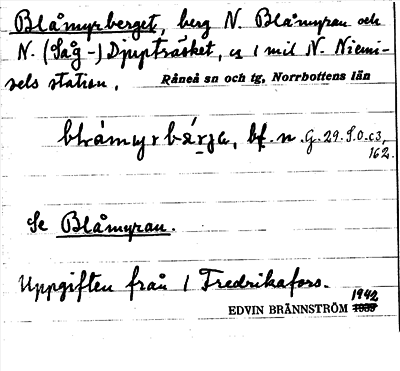 Blåmyrberget, berg N. Blåmyran och
N. (Såg-) Djupträsket, ca 1 mil N. Niemi-
sels station. Råneå sn och tg, Norrbottens län
bf. n. G. 29. S. O. c3,
162.
Se Blåmyran.
Uppgiften från 1 Fredrikafors.
1942
EDVIN BRÄNNSTRÖM 1939